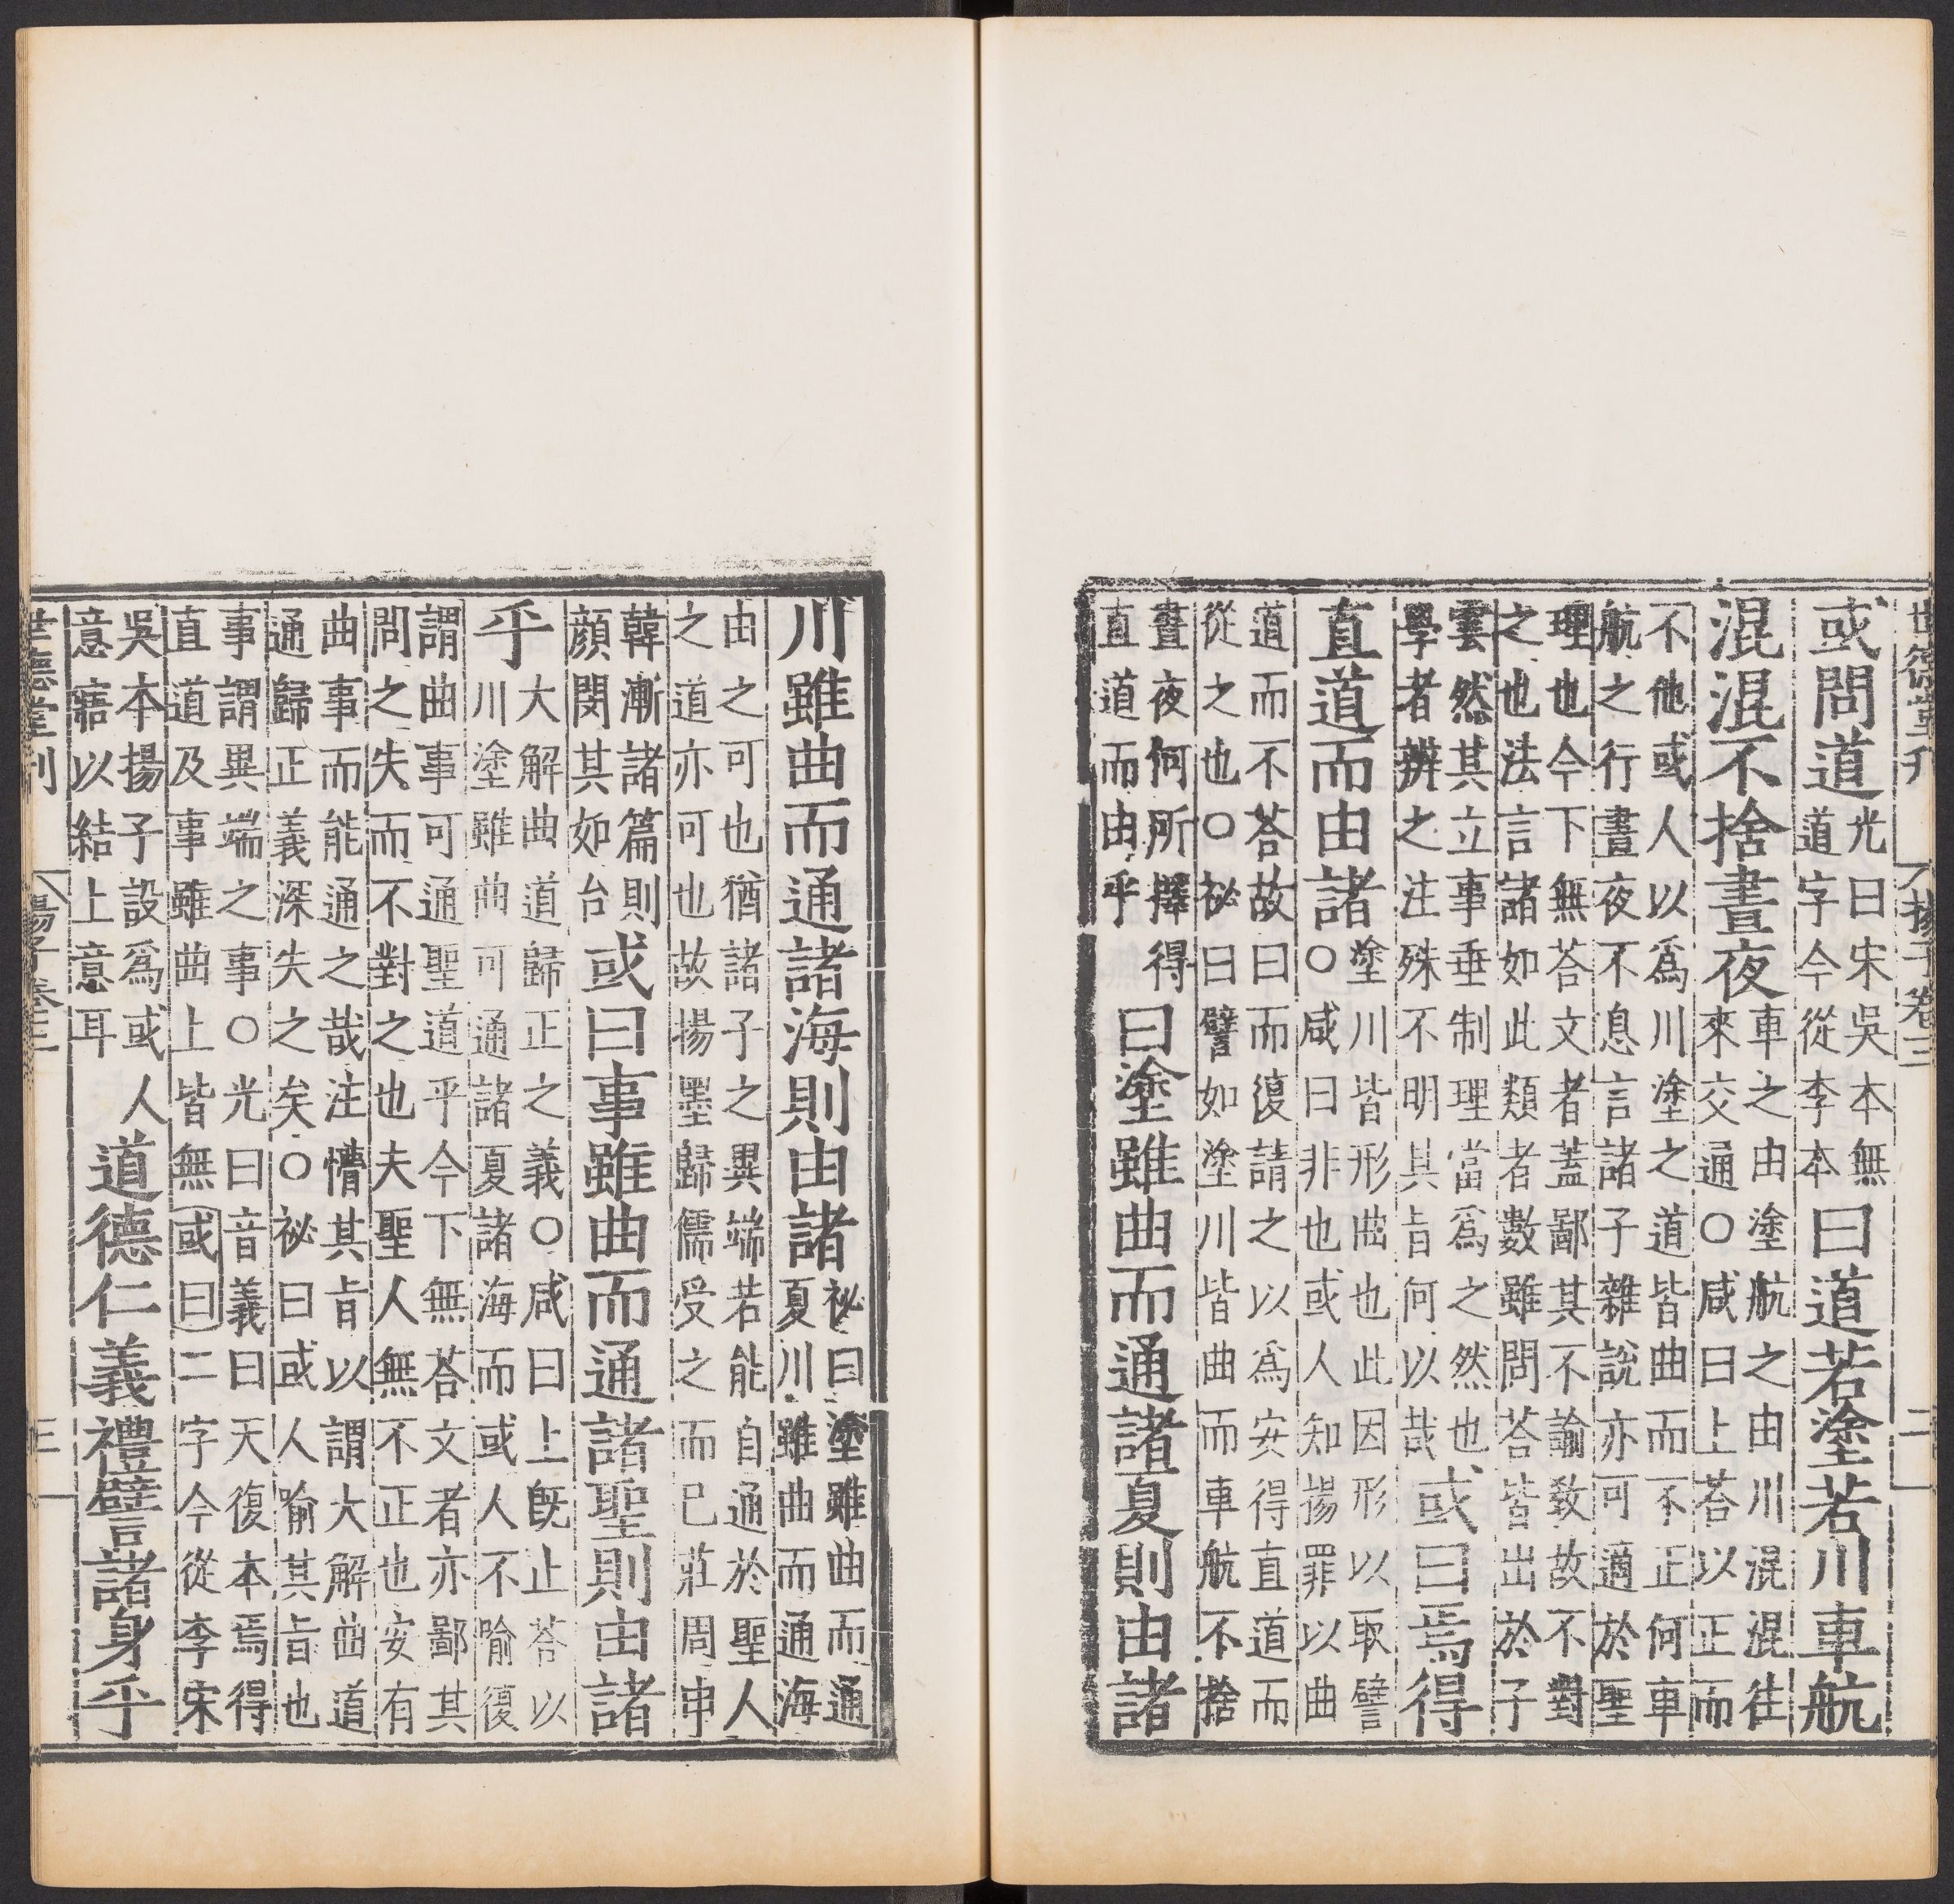 世德堂刊 揚子卷三 二
或問道光曰宋吳本無道字今從李本曰道若塗若川車航
混混不捨晝夜車之由塗航之由川混混往來交通○咸曰上荅以正而
不他或人以爲川塗之道皆曲而不正何車
航之行晝夜不息言諸子雜說亦可適於聖
理也今下無荅文者蓋鄙其不諭教故不對
之也法言諸如此類者數雖問荅皆出於子
雲然其立事垂制理當爲之然也
學者辨之注殊不明其旨何以哉或曰焉得
直道而由諸塗川皆形曲也此因形以取譬○咸曰非也或人知揚罪以曲
道而不荅故曰而復請之以爲安得直道而
從之也○祕曰譬如塗川皆曲而車航不捨
晝夜何所擇得
直道而由乎曰塗雖曲而通諸夏則由諸
川雖曲而通諸海則由諸祕曰塗雖曲而通夏川雖曲而通海
由之可也猶諸子之異端若能自通於聖人
之道亦可也故揚墨歸儒受之而已莊周申
韓漸諸篇則
顔閔其如台或曰事雖曲而通諸聖則由諸
乎大解曲道歸正之義○咸曰上旣止荅以川塗雖曲可通諸夏諸海而或人不喻復
謂曲事可通聖道乎今下無荅文者亦鄙其
問之失而不對之也夫聖人無不正也安有
曲事而能通之哉注懵其旨以謂大解曲道
通歸正義深失之矣○祕曰或人喻其旨也
事謂異端之事○光曰音義曰天復本焉得
直道及事雖曲上皆無或曰二字今從李宋
吳本揚子設爲或人
意寤以結上意耳道德仁義禮譬諸身乎
世德堂刊 揚子卷三 三